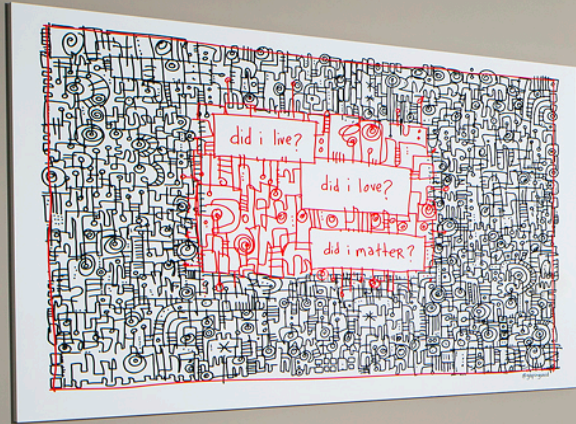 did i live?
did i love?
did i matter?